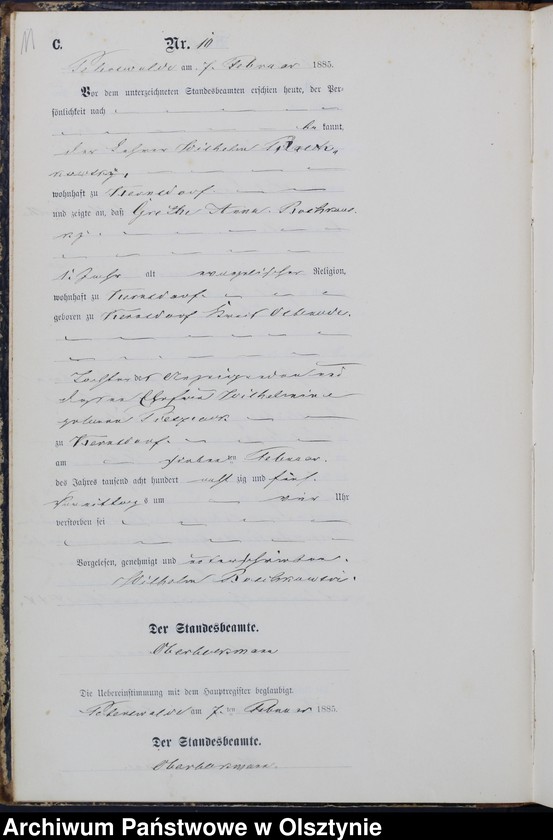 C. Nr. 10
Peterswalde am 7. Februar 1885.
Vor dem unterzeichneten Standesbeamten erschien heute, der Per-
sönlichkeit nach
be kannt,
der Lehrer Wilhelm
wohnhaft zu Kernsdorf
und zeigte an, daß Grethe Anna
1 Jahr alt evangelischer Religion,
wohnhaft zu Kernsdorf
geboren zu Kernsdorf Kreis Osterode,
Tochter des Anzeigenden und
dessen Ehefrau Wilhelmine
geborene
zu Kernsdorf
am sieben ten Februar
des Jahres tausend acht hundert acht zig und fünf
Vormittags um vier Uhr
verstorben sei
Vorgelesen, genehmigt und unterschrieben.
Wilhelm
Der Standesbeamte.
Die Uebereinstimmung mit dem Hauptregister beglaubigt.
Peterswalde am 7 ten Februar 1885.
Der Standesbeamte.
Archiwum Państwowe w Olsztynie